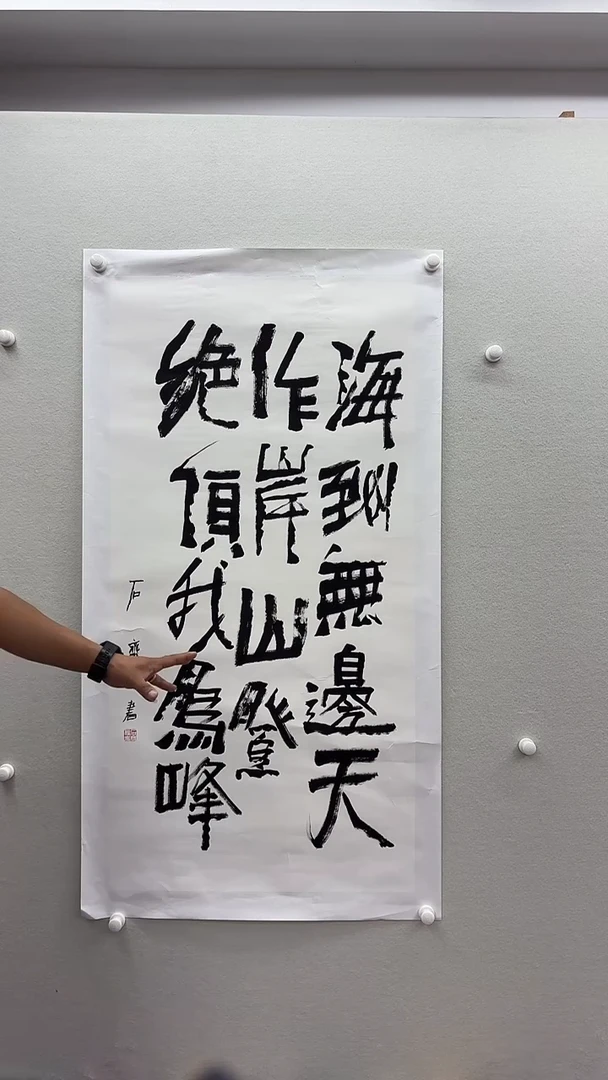 海到無邊天
作岸山登
絶頂我爲峰
石齊書